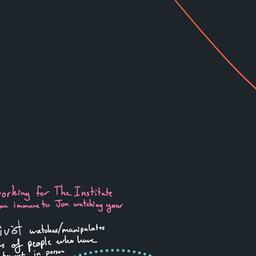 orking for The Institute
immune to Jon watching your
watches/manipulates
of people who have
in person